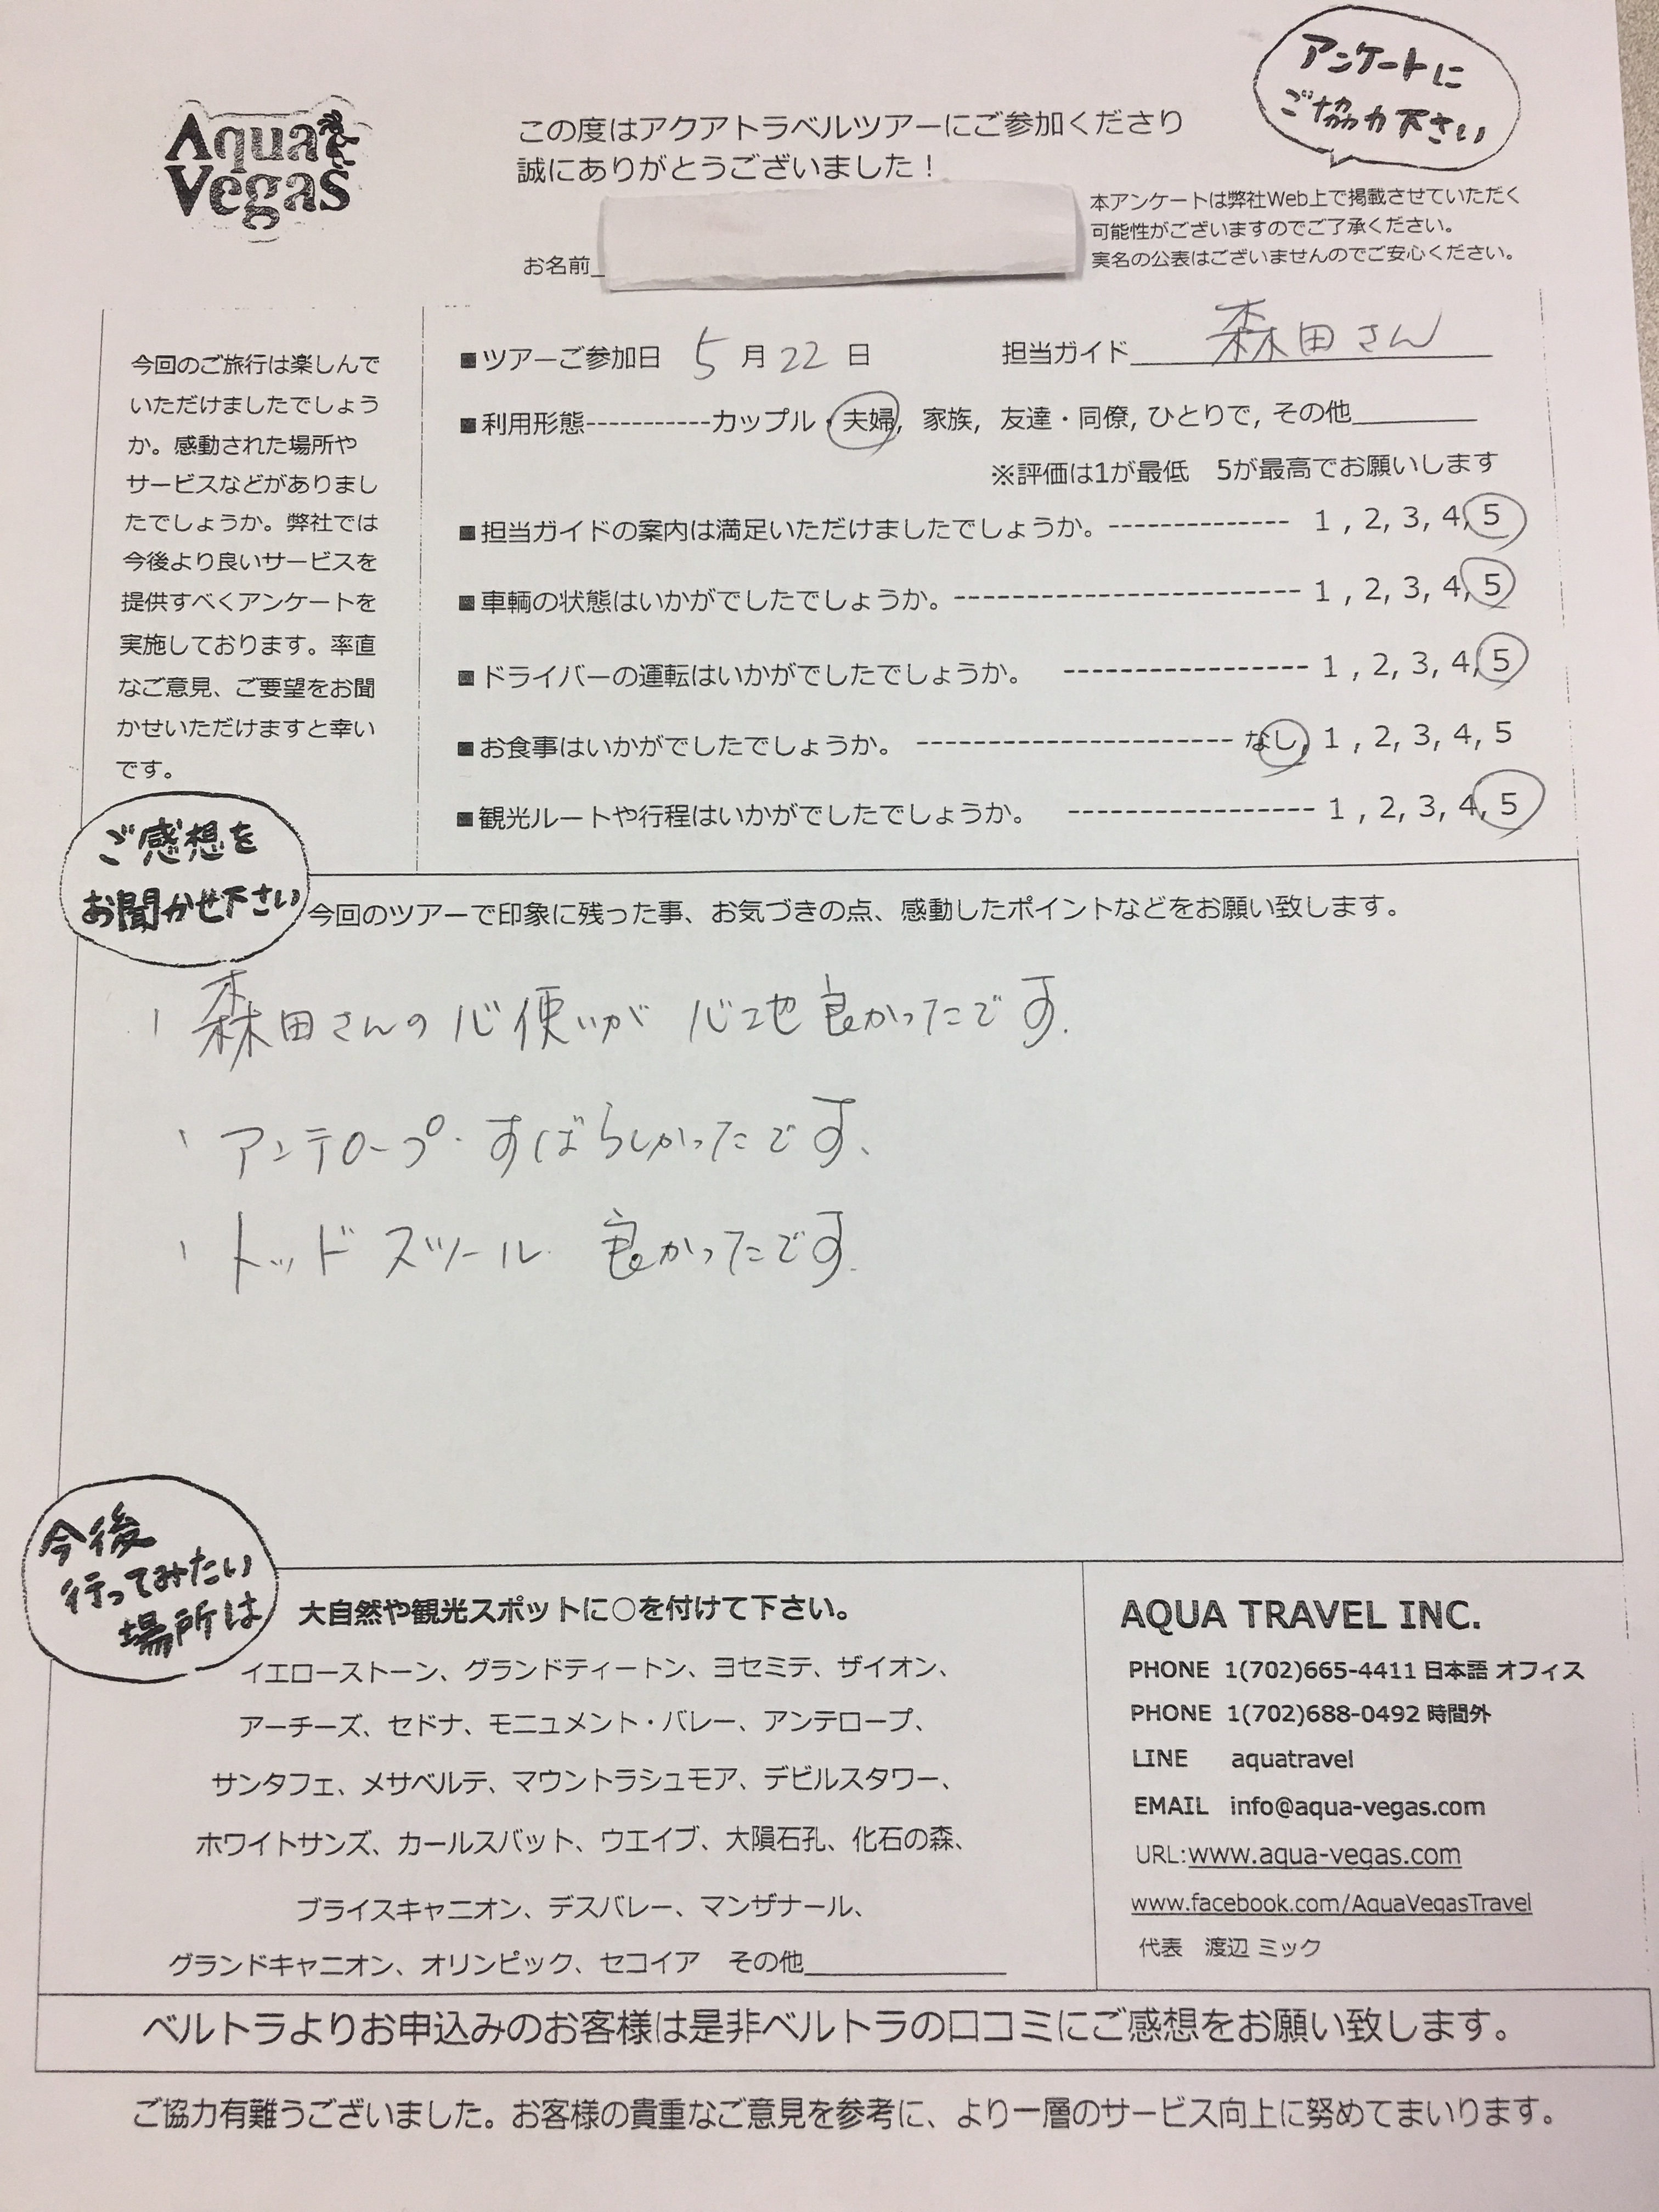 Aqua
Vegas
この度はアクアトラベルツアーにご参加くださり
誠にありがとうございました！
アンケートに
ご協力下さい
本アンケートは弊社Web上で掲載させていただく
可能性がございますのでご了承ください。
実名の公表はございませんのでご安心ください。
お名前
今回のご旅行は楽しんで
いただけましたでしょう
か。感動された場所や
サービスなどがありまし
たでしょうか。弊社では
今後より良いサービスを
提供すべくアンケートを
実施しております。率直
なご意見、ご要望をお聞
かせいただけますと幸い
です。
■ツアーご参加日 5 月 22 日 担当ガイド 森田さん
■利用形態-----------カップル・夫婦, 家族, 友達・同僚, ひとりで, その他________
※評価は1が最低　5が最高でお願いします
■担当ガイドの案内は満足いただけましたでしょうか。-------------- 1 , 2, 3, 4, 5
■車輌の状態はいかがでしたでしょうか。--------------------------- 1 , 2, 3, 4, 5
■ドライバーの運転はいかがでしたでしょうか。 ------------------- 1 , 2, 3, 4, 5
■お食事はいかがでしたでしょうか。 ------------------------ なし, 1 , 2, 3, 4, 5
■観光ルートや行程はいかがでしたでしょうか。 ------------------- 1 , 2, 3, 4, 5
ご感想を
お聞かせ下さい
今回のツアーで印象に残った事、お気づきの点、感動したポイントなどをお願い致します。
、森田さんの心使いが 心地良かったです.
、アンテロープ・すばらしかったです、
、トッドスツール 良かったです.
今後
行ってみたい
場所は
大自然や観光スポットに○を付けて下さい。
イエローストーン、グランドティートン、ヨセミテ、ザイオン、
アーチーズ、セドナ、モニュメント・バレー、アンテロープ、
サンタフェ、メサベルテ、マウントラシュモア、デビルスタワー、
ホワイトサンズ、カールスバット、ウエイブ、大隕石孔、化石の森、
ブライスキャニオン、デスバレー、マンザナール、
グランドキャニオン、オリンピック、セコイア　その他____________
AQUA TRAVEL INC.
PHONE 1(702)665-4411 日本語 オフィス
PHONE 1(702)688-0492 時間外
LINE aquatravel
EMAIL info@aqua-vegas.com
URL:www.aqua-vegas.com
www.facebook.com/AquaVegasTravel
代表　渡辺 ミック
ベルトラよりお申込みのお客様は是非ベルトラの口コミにご感想をお願い致します。
ご協力有難うございました。お客様の貴重なご意見を参考に、より一層のサービス向上に努めてまいります。